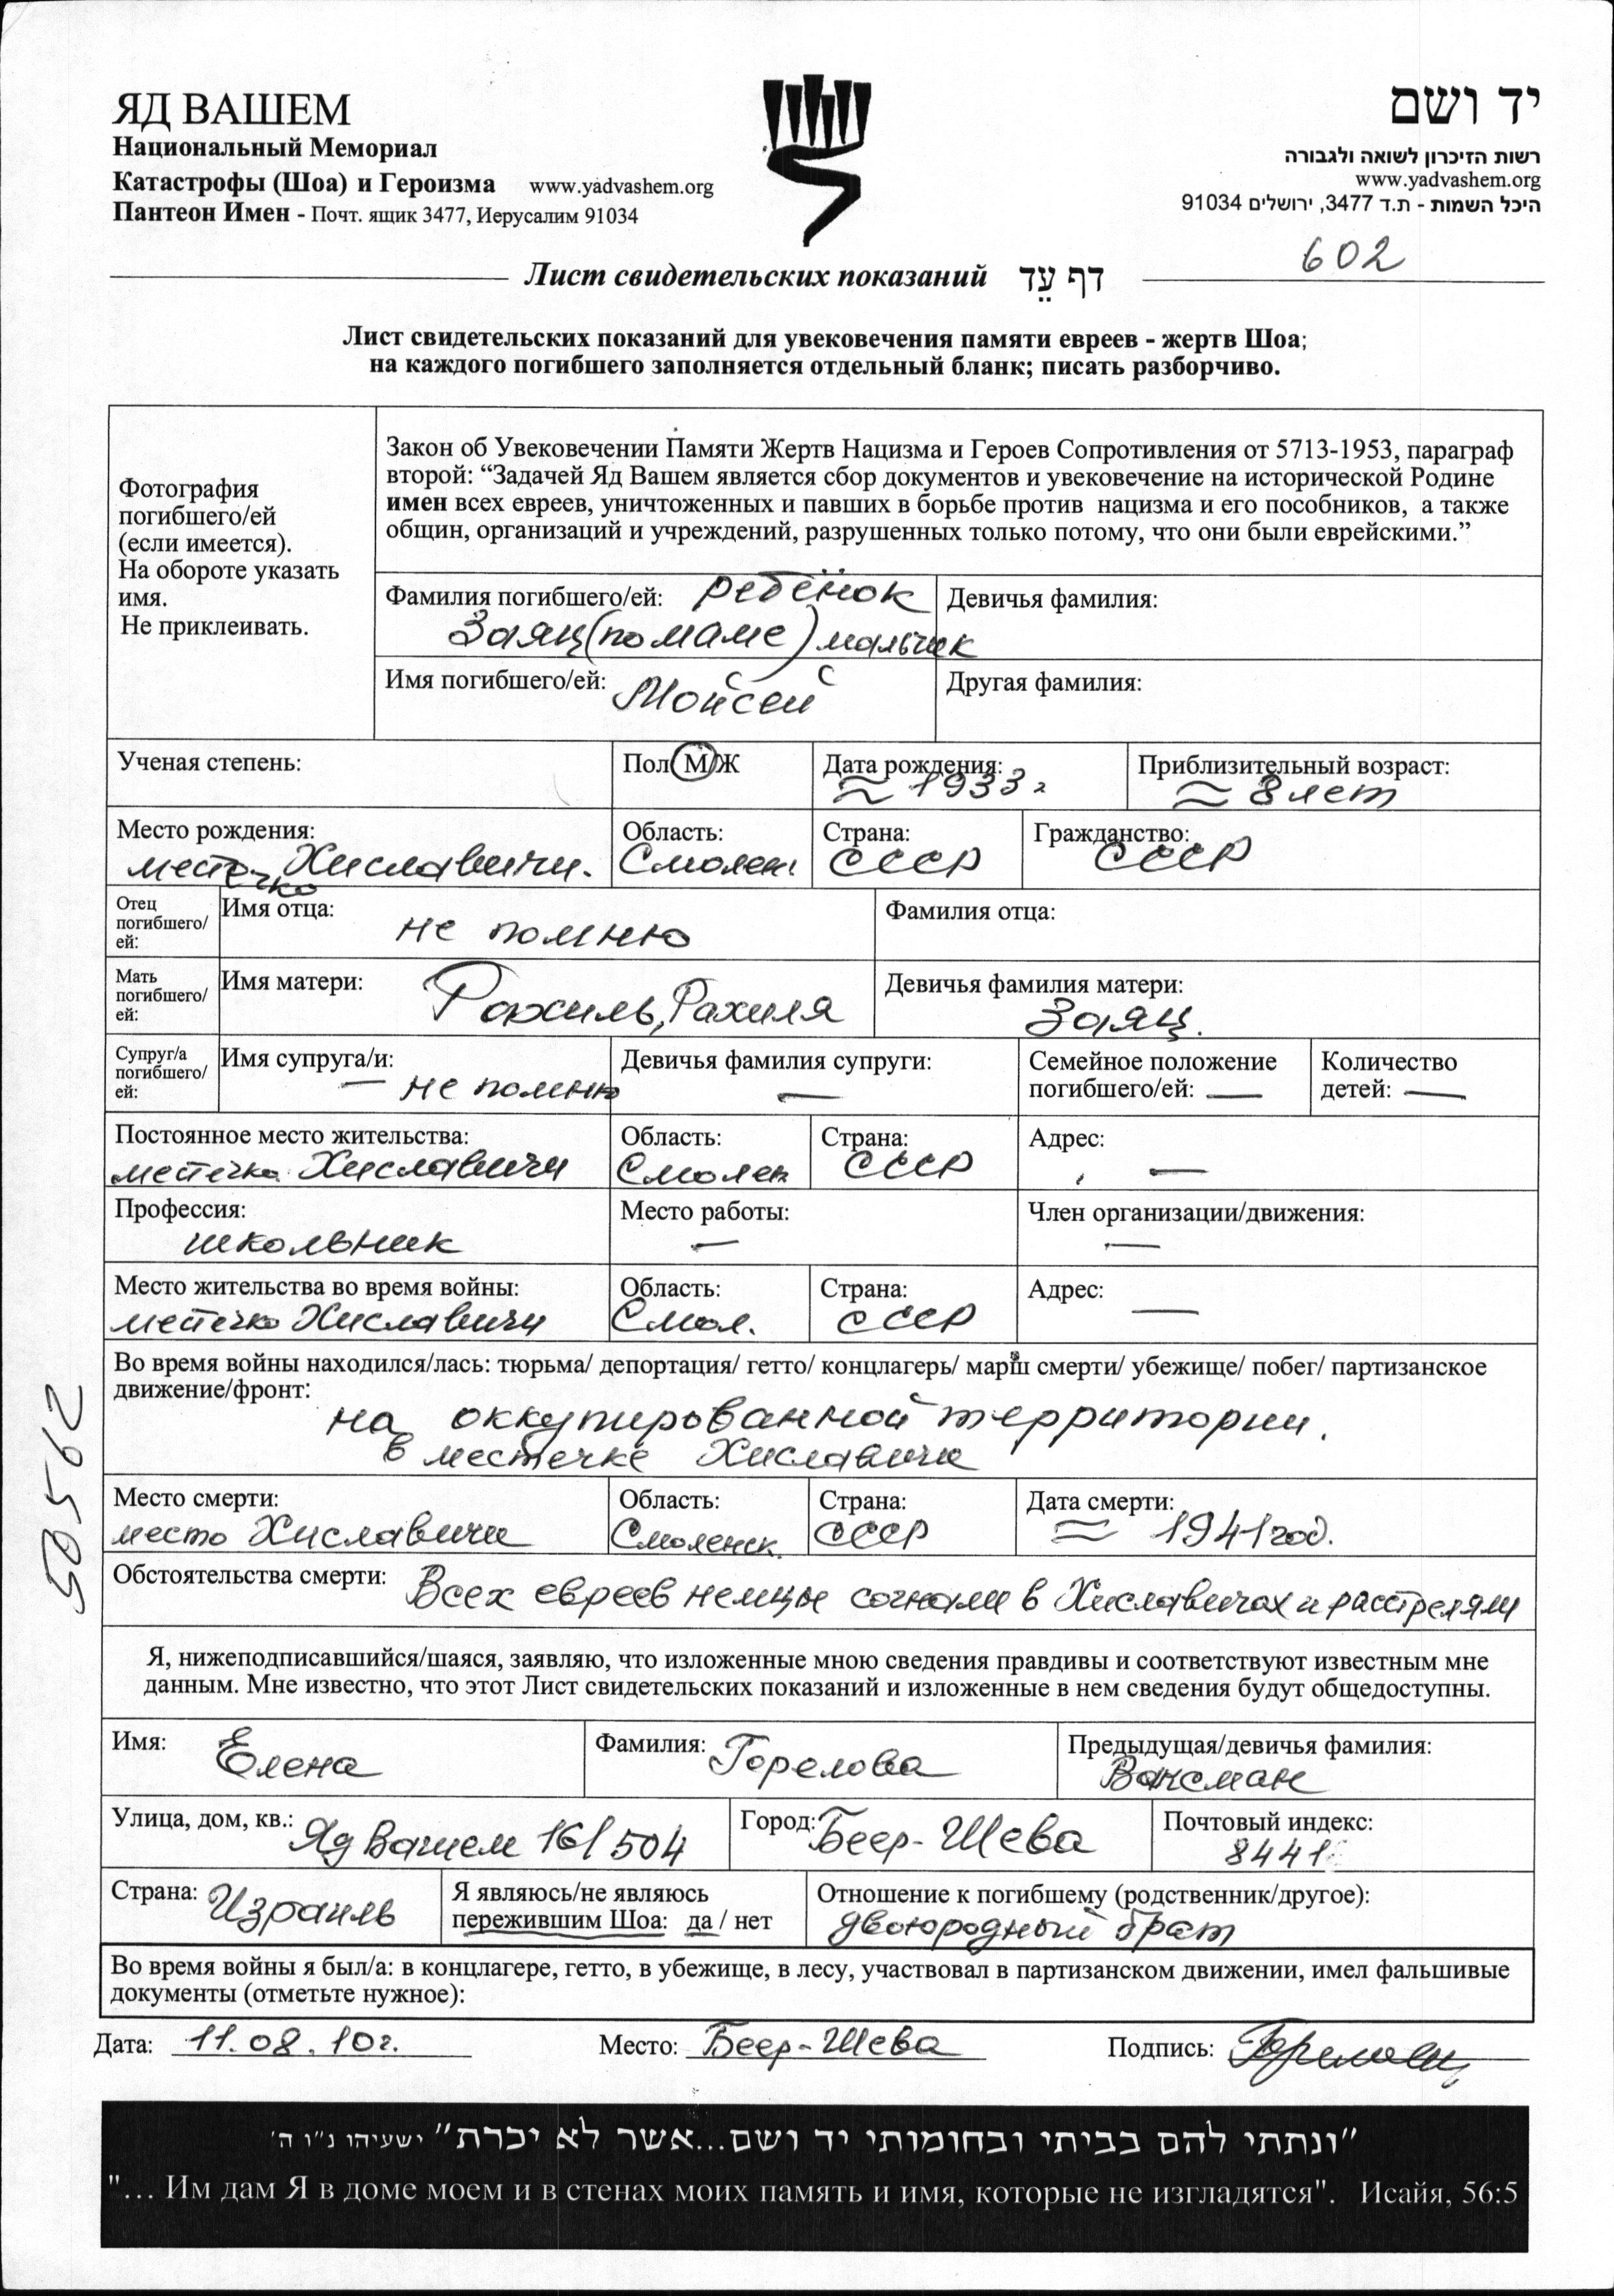 ЯД ВАШЕМ
Национальный Мемориал
Катастрофы (Шоа) и Героизма www.yadvashem.org
Пантеон Имен - Почт. ящик 3477, Иерусалим 91034
יד ושם
רשות הזיכרון לשואה ולגבורה
www.yadvashem.org
היכל השמות - ת.ד 3477, ירושלים 91034
602
Лист свидетельских показаний דף עֵד
Лист свидетельских показаний для увековечения памяти евреев - жертв Шоа;
на каждого погибшего заполняется отдельный бланк; писать разборчиво.
Фотография
погибшего/ей
(если имеется).
На обороте указать
имя.
Не приклеивать.
Закон об Увековечении Памяти Жертв Нацизма и Героев Сопротивления от 5713-1953, параграф
второй: “Задачей Яд Вашем является сбор документов и увековечение на исторической Родине
имен всех евреев, уничтоженных и павших в борьбе против нацизма и его пособников, а также
общин, организаций и учреждений, разрушенных только потому, что они были еврейскими.”
Фамилия погибшего/ей: ребёнок
Заяц (по маме) мальчик
Девичья фамилия:
Имя погибшего/ей: Мойсей
Другая фамилия:
Ученая степень:
Пол М/Ж
Дата рождения:
≈ 1933г
Приблизительный возраст:
≈ 8 лет
Место рождения:
местечко Хиславичи.
Область:
Смолен.
Страна:
СССР
Гражданство:
СССР
Отец
погибшего/
ей:
Имя отца:
не помню
Фамилия отца:
Мать
погибшего/
ей:
Имя матери:
Рахиль, Рахиля
Девичья фамилия матери:
Заяц.
Супруг/а
погибшего/
ей:
Имя супруга/и:
— не помню
Девичья фамилия супруги:
—
Семейное положение
погибшего/ей: —
Количество
детей: —
Постоянное место жительства:
местечко Хиславичи
Область:
Смолен
Страна:
СССР
Адрес:
—
Профессия:
школьник
Место работы:
—
Член организации/движения:
—
Место жительства во время войны:
местечко Хиславичи
Область:
Смол.
Страна:
СССР
Адрес:
—
Во время войны находился/лась: тюрьма/ депортация/ гетто/ концлагерь/ марш смерти/ убежище/ побег/ партизанское
движение/фронт:
на оккупированной территории.
в местечке Хиславичи
50562
Место смерти:
место Хиславичи
Область:
Смоленск.
Страна:
СССР
Дата смерти:
≈ 1941 год.
Обстоятельства смерти: Всех евреев немцы согнали в Хиславичах и расстреляли
Я, нижеподписавшийся/шаяся, заявляю, что изложенные мною сведения правдивы и соответствуют известным мне
данным. Мне известно, что этот Лист свидетельских показаний и изложенные в нем сведения будут общедоступны.
Имя: Елена
Фамилия: Горелова
Предыдущая/девичья фамилия:
Ваксман
Улица, дом, кв.: Яд Вашем 16/504
Город: Беер-Шева
Почтовый индекс:
8441
Страна: Израиль
Я являюсь/не являюсь
пережившим Шоа: да / нет
Отношение к погибшему (родственник/другое):
двоюродный брат
Во время войны я был/а: в концлагере, гетто, в убежище, в лесу, участвовал в партизанском движении, имел фальшивые
документы (отметьте нужное):
Дата: 11.08.10г. Место: Беер-Шева Подпись:
"ונתתי להם בביתי ובחומותי יד ושם...אשר לא יכרת" ישעיהו נ"ו ה'
"... Им дам Я в доме моем и в стенах моих память и имя, которые не изгладятся". Исайя, 56:5